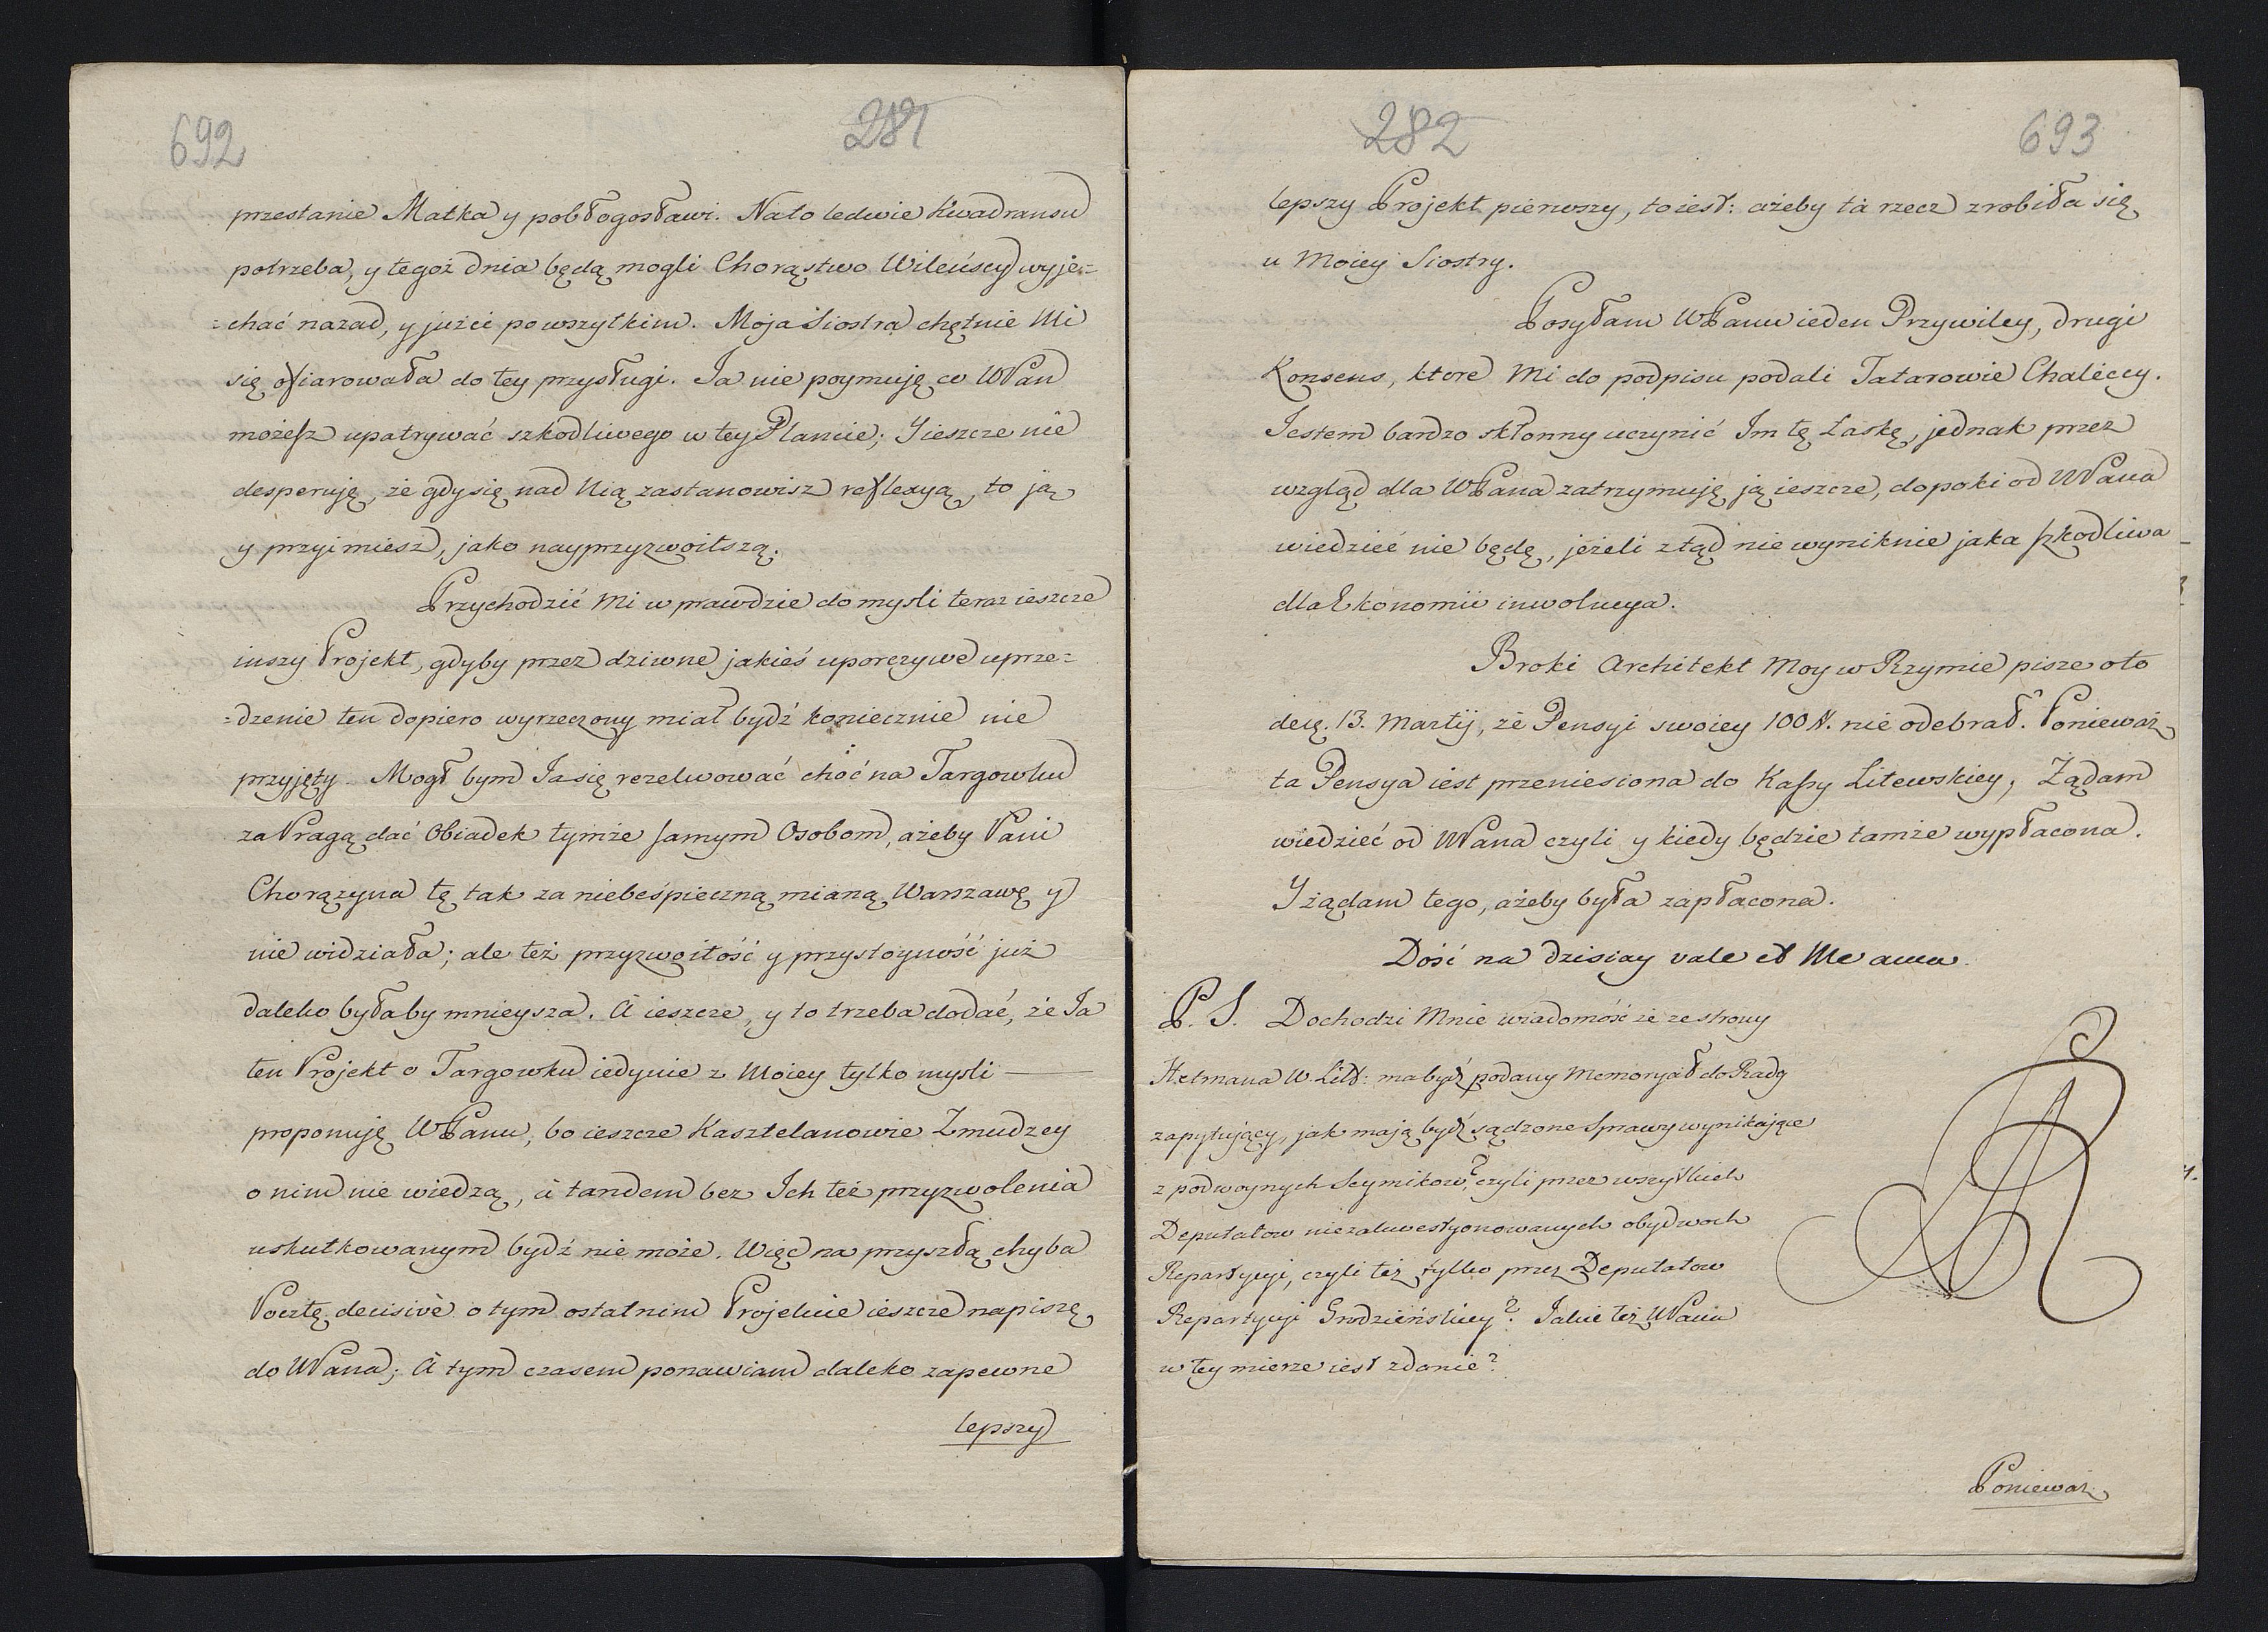 692
281
przestanie Matka y pobłogosławi. Na to ledwie Kwadransu
potrzeba, y tegoż dnia będą mogli Chorąstwo Wileńscy wyje=
=chać nazad, y jużci po wszytkim. Moja Siostra chętnie Mi
się ofiarowała do tey przysługi. Ia nie poymuję co WPan
możesz upatrywać szkodliwego w tey Plancie; Y ieszcze nie
desperuję, że gdy się nad Nią zastanowisz reflexyą, to ją
y przyimiesz, jako nayprzyzwoitszą.
Przychodzić Mi w prawdzie do mysli teraz ieszcze
inszy Projekt, gdyby przez dziwne jakieś uporczywe uprze=
=dzenie ten dopiero wyrzeczony miał bydź koniecznie nie
przyjęty. Mogł bym Ia się rezelwować choć na Targowku
za Pragą dać Obiadek tymże samym Osobom, ażeby Pani
Chorązyna tę tak za niebeśpieczną mianą Warszawę y
nie widziała; ale też przyzwoitość y przystoyność już
daleko byłaby mnieysza. A ieszcze, y to trzeba dodać, że Ia
ten Projekt o Targowku iedynie z Moiey tylko mysli
proponuję WPanu, bo ieszcze Kasztelanowie Zmudzcy
o nim nie wiedzą, à tandem bez Ich też przyzwolenia
uskutkowanym bydź nie może. Więc na przyszłą chyba
Pocztę decisivè o tym ostatnim Projekcie ieszcze napiszę
do WPana; A tym czasem ponawiam daleko zapewne
lepszy
282
693
lepszy Projekt pierwszy, to iest: ażeby ta rzecz zrobiła się
u Moiey Siostry.
Posyłam WPanu ieden Przywiley, drugi
Konsens, ktore Mi do podpisu podali Tatarowie Chaleccy.
Iestem bardzo skłonny uczynić Im tę Łaskę, jednak przez
wzgląd dla WPana zatrzymuję ją ieszcze, dopoki od WPana
wiedzieć nie będę, jeżeli ztąd nie wyniknie jaka szkodliwa
dla Ekonomii inwolucya.
Broki Architekt Moy w Rzymie pisze oto
de 13. Martij, że Pensyi swoiey 100 #. nie odebrał. Ponieważ
ta Pensya iest przeniesiona do Kassy Litewskiey, Żądam
wiedzieć od WPana czyli y kiedy będzie tamże wypłacona.
Y żądam tego, ażeby była zapłacona.
Dość na dzisiay vale et Me ama.
P. S. Dochodzi Mnie wiadomość że ze strony
Hetmana W. Litt: ma bydź podany Memoryał do Rady
zapytujący, jak mają bydź sądzone Sprawy wynikające
z podwoynych Seymikow? czyli przez wszystkich
Deputatow niezakwestyonowanych obydwoch
Repartycyi, czyli też tylko przez Deputatow
Repartycyi Grodzieńskiey? Iakie też WPana
w tey mierze iest zdanie?
SAR
Ponieważ